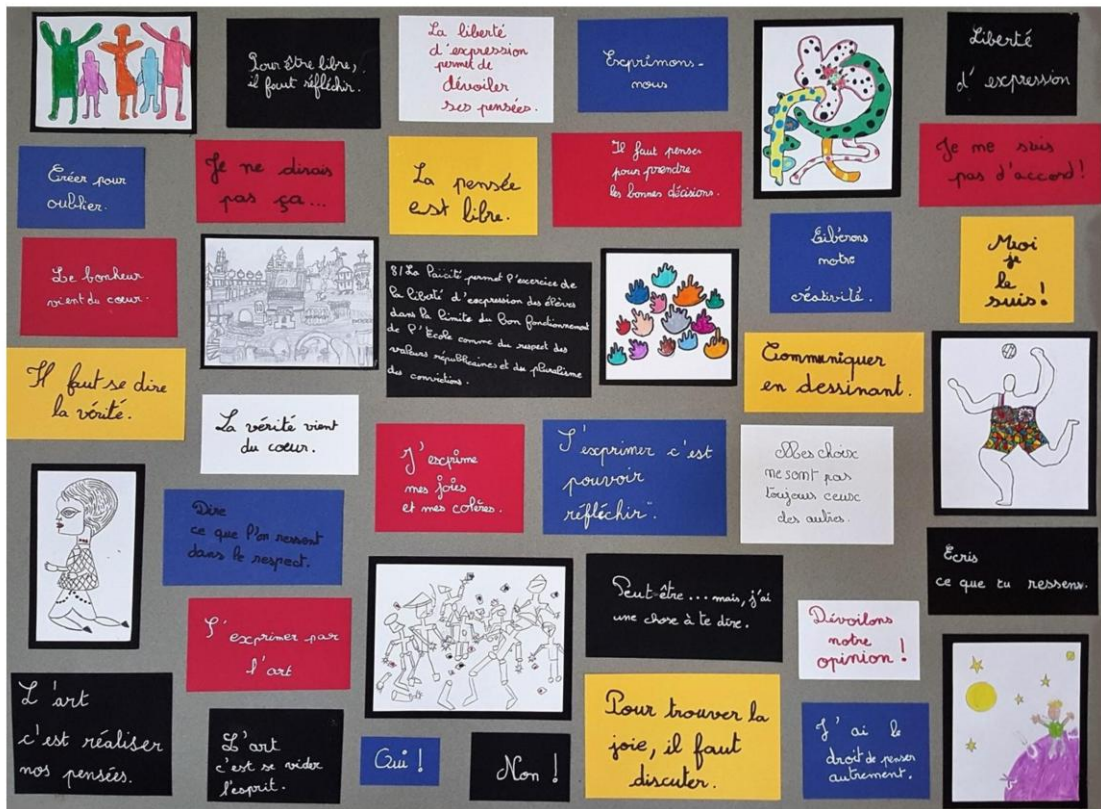 Pour être libre,
il faut réfléchir.
La liberté
d'expression
permet de
dévoiler
ses pensées.
Exprimons-
nous
Liberté
d'expression
Créer pour
oublier.
Je ne dirais
pas ça...
La pensée
est libre.
Il faut penser
pour prendre
les bonnes décisions.
Je ne suis
pas d'accord!
Le bonheur
vient du cœur.
8/ La laïcité permet l'exercice de
la liberté d'expression des élèves
dans la limite du bon fonctionnement
de l'École comme du respect des
valeurs républicaines et du pluralisme
des convictions.
Libérons
notre
créativité.
Moi
je
le
suis!
Il faut se dire
la vérité.
La vérité vient
du coeur.
J'exprime
mes joies
et mes colères.
S'exprimer c'est
pouvoir
réfléchir".
Communiquer
en dessinant.
Mes choix
ne sont pas
toujours ceux
des autres.
Dire
ce que l'on ressent
dans le respect.
Peut-être... mais, j'ai
une chose à te dire.
Écris
ce que tu ressens.
S'exprimer par
l'art
Dévoilons
notre
opinion!
L'art
c'est réaliser
nos pensées.
L'art
c'est se vider
l'esprit.
Oui!
Non!
Pour trouver la
joie, il faut
discuter.
J'ai le
droit de penser
autrement.